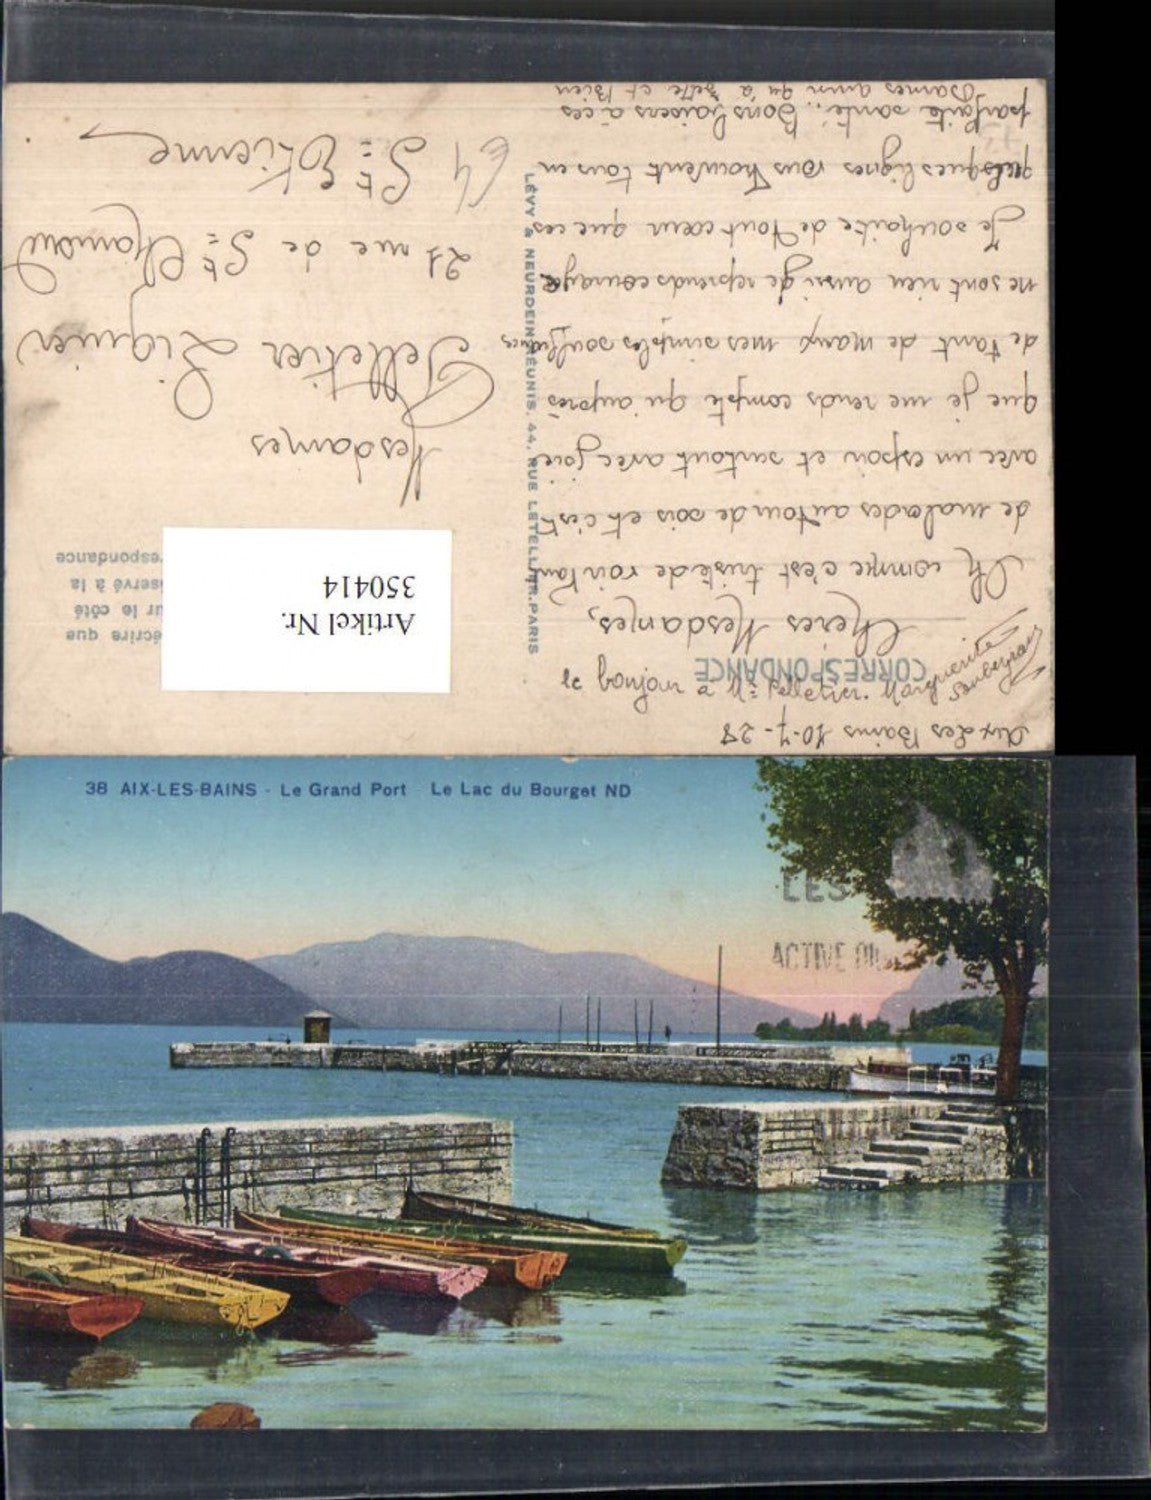 Aix Les Bains 10-7-28
CORRESPONDANCE
le bonjour à Mme Pelletier. Marguerite
Chères Mesdames,
Oh comme c'est triste de voir tant
de malades autour de sois et c'est
avec un espoir et surtout avec joie
que je me rends compte qu'auprès
de tant de maux mes simples souffrances
ne sont rien aussi je reprends courage
Je souhaite de tout cœur que ces
quelques lignes vous trouvent tous en
parfaite santé. Bons baisers à ces
Dames ainsi qu'à et Bien
LÉVY & NEURDEIN RÉUNIS, 44, RUE LETELLIER, PARIS
écrire que
ur le côté
servé à la
respondance
Artikel Nr.
350414
Mesdames
Pelletier Liquier
21 rue de St Chamond
St Etienne
38 AIX-LES-BAINS - Le Grand Port Le Lac du Bourget ND
LES
ACTIVE